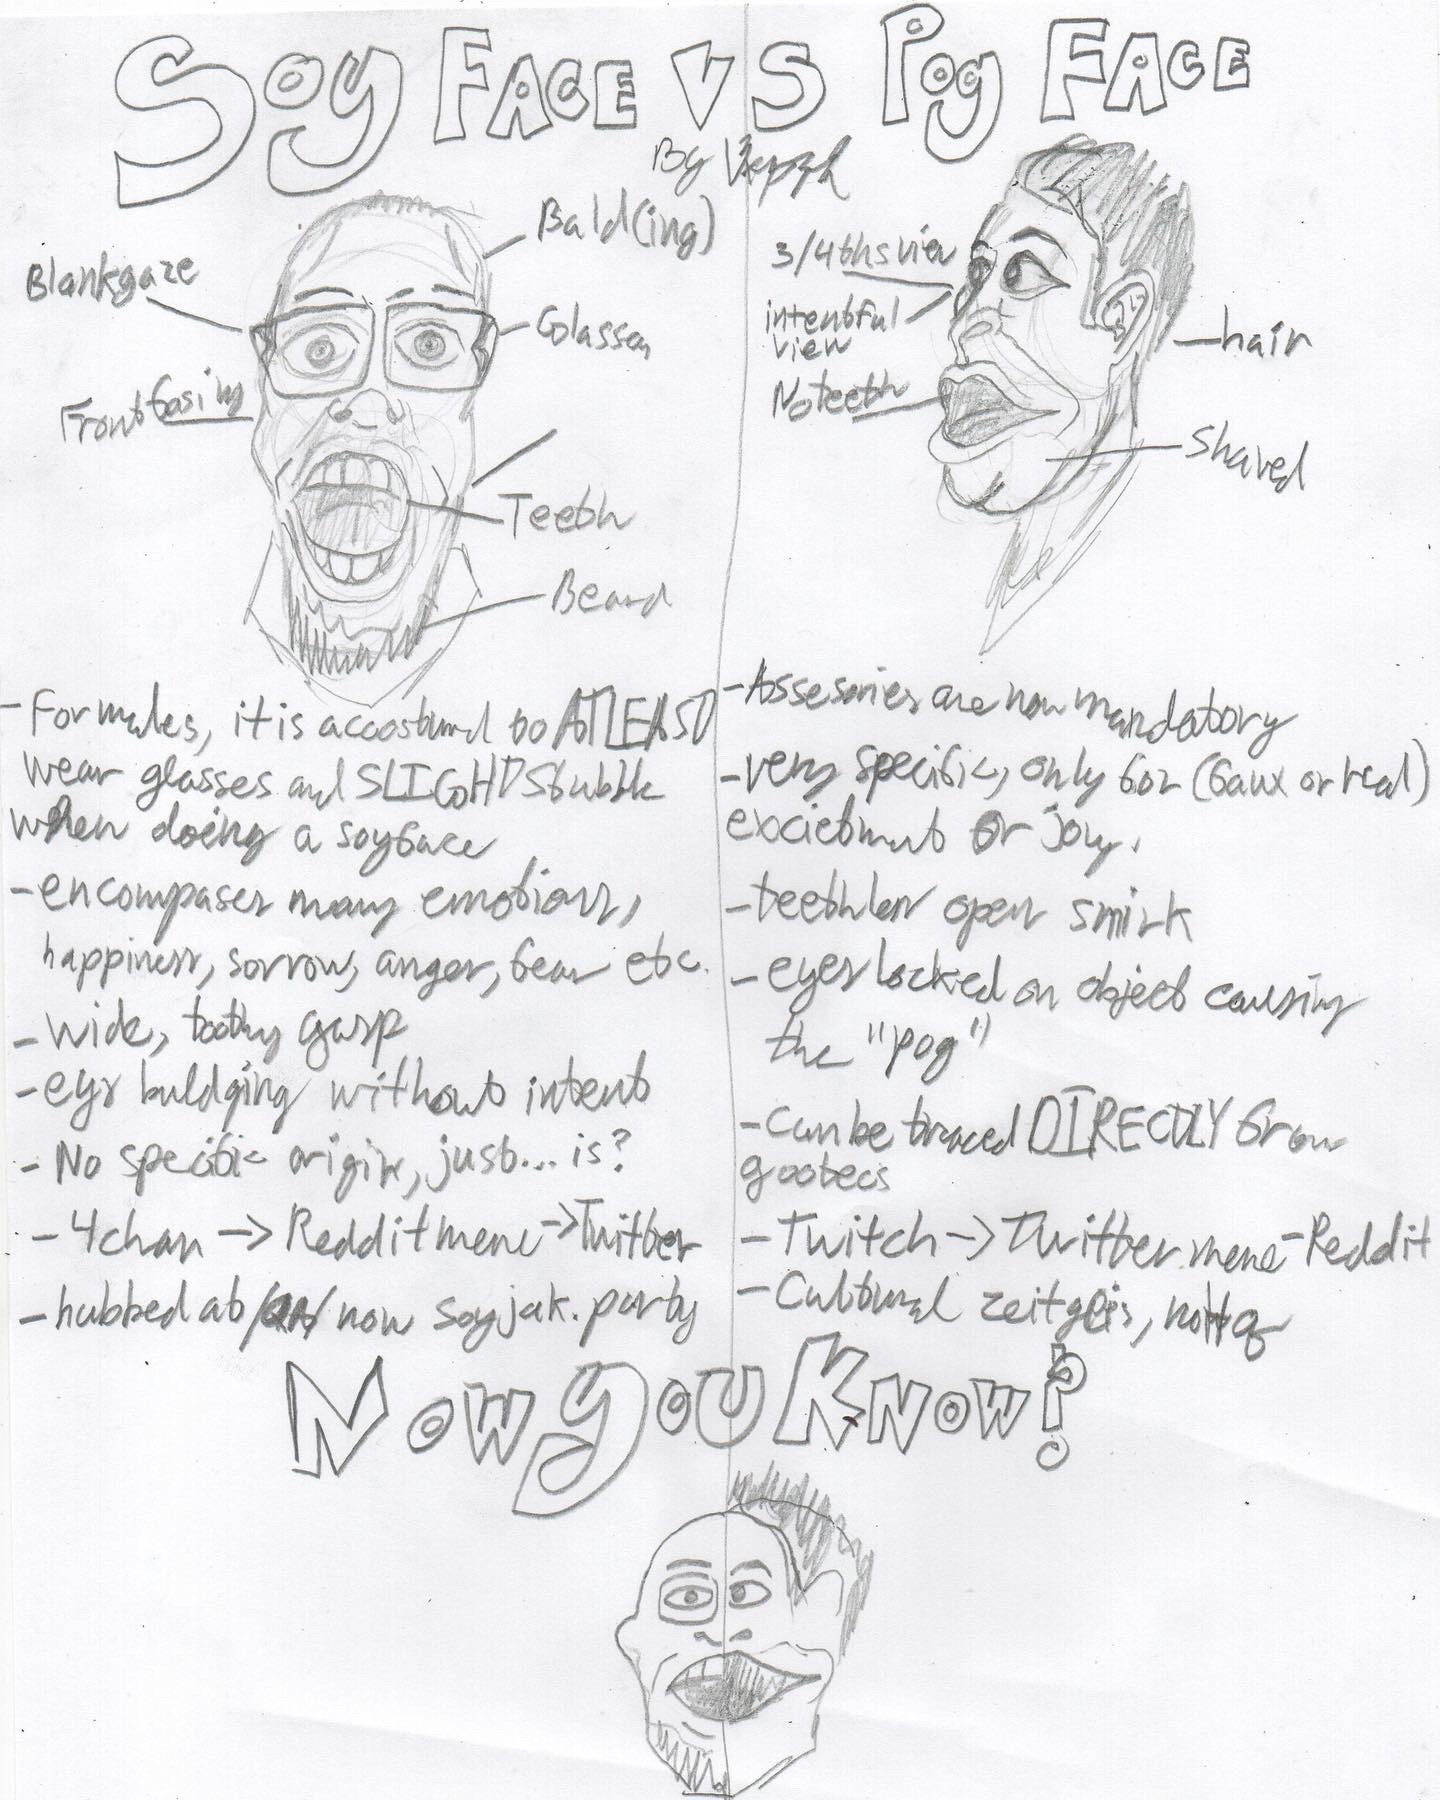 Soy Face vs Pog Face
By
Bald(ing)
Blank gaze
Glasses
Front facing
Teeth
Beard
3/4ths view
view
No teeth
hair
Shaved
- For males, it is accostumd to ATLEAST
wear glasses and SLIGHT stubble
when doing a soyface
- encompases many emotions,
happiness, sorrow, anger, fear etc.
- wide, toothy gasp
- eys buldging without intent
- No specific origin, just... is?
- 4chan -> Reddit meme -> Twitter
- hubbed at now soyjak.party
- Assesories are non mandatory
- very specific, only for (faux or real)
or joy.
- teethles open smirk
- eyes locked on object causing
the "pog"
- Can be traced DIRECTLY from
gootecs
- Twitch -> Twitter meme - Reddit
- Cultural
Now you Know!?